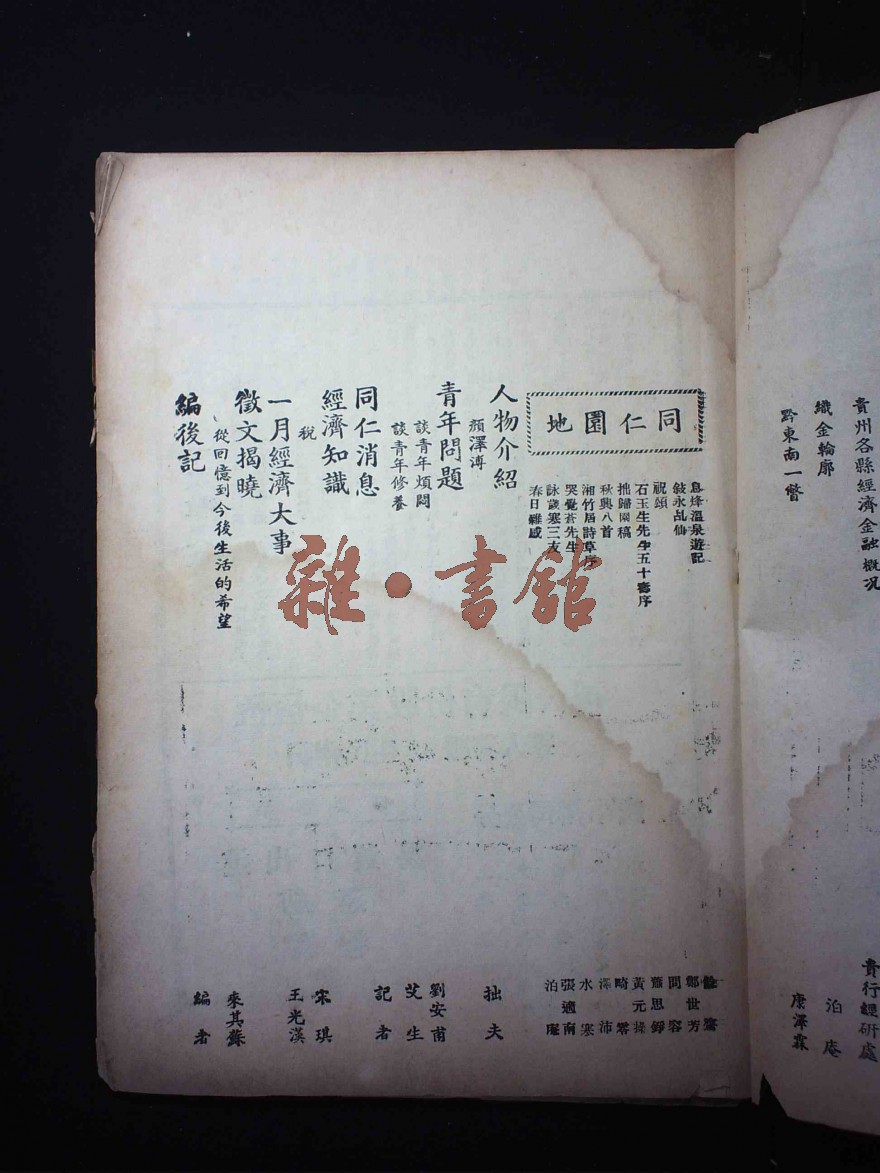 貴州各縣經濟金融概况
貴行經研處
織金輪廓
泊庵
黔東南一瞥
康澤霖
同仁園地
息烽溫泉遊記
敍永乩仙
鄭世芳
祝頌
問容
石玉生先生五十壽序
蕭思錚
拙歸園稿
黃元操
秋興八首
畸零
湘竹居詩草序
澤沛
哭覺蒼先生
水寒
詠歲寒三友
張適南
春日雜感
泊庵
人物介紹
顏澤溥
拙夫
青年問題
談青年煩悶
劉安甫
談青年修養
艾生
同仁消息
記者
經濟知識
稅
宋琪
一月經濟大事
王光漢
徵文揭曉
從回憶到今後生活的希望
來其蘇
編後記
編者
雜·書舘